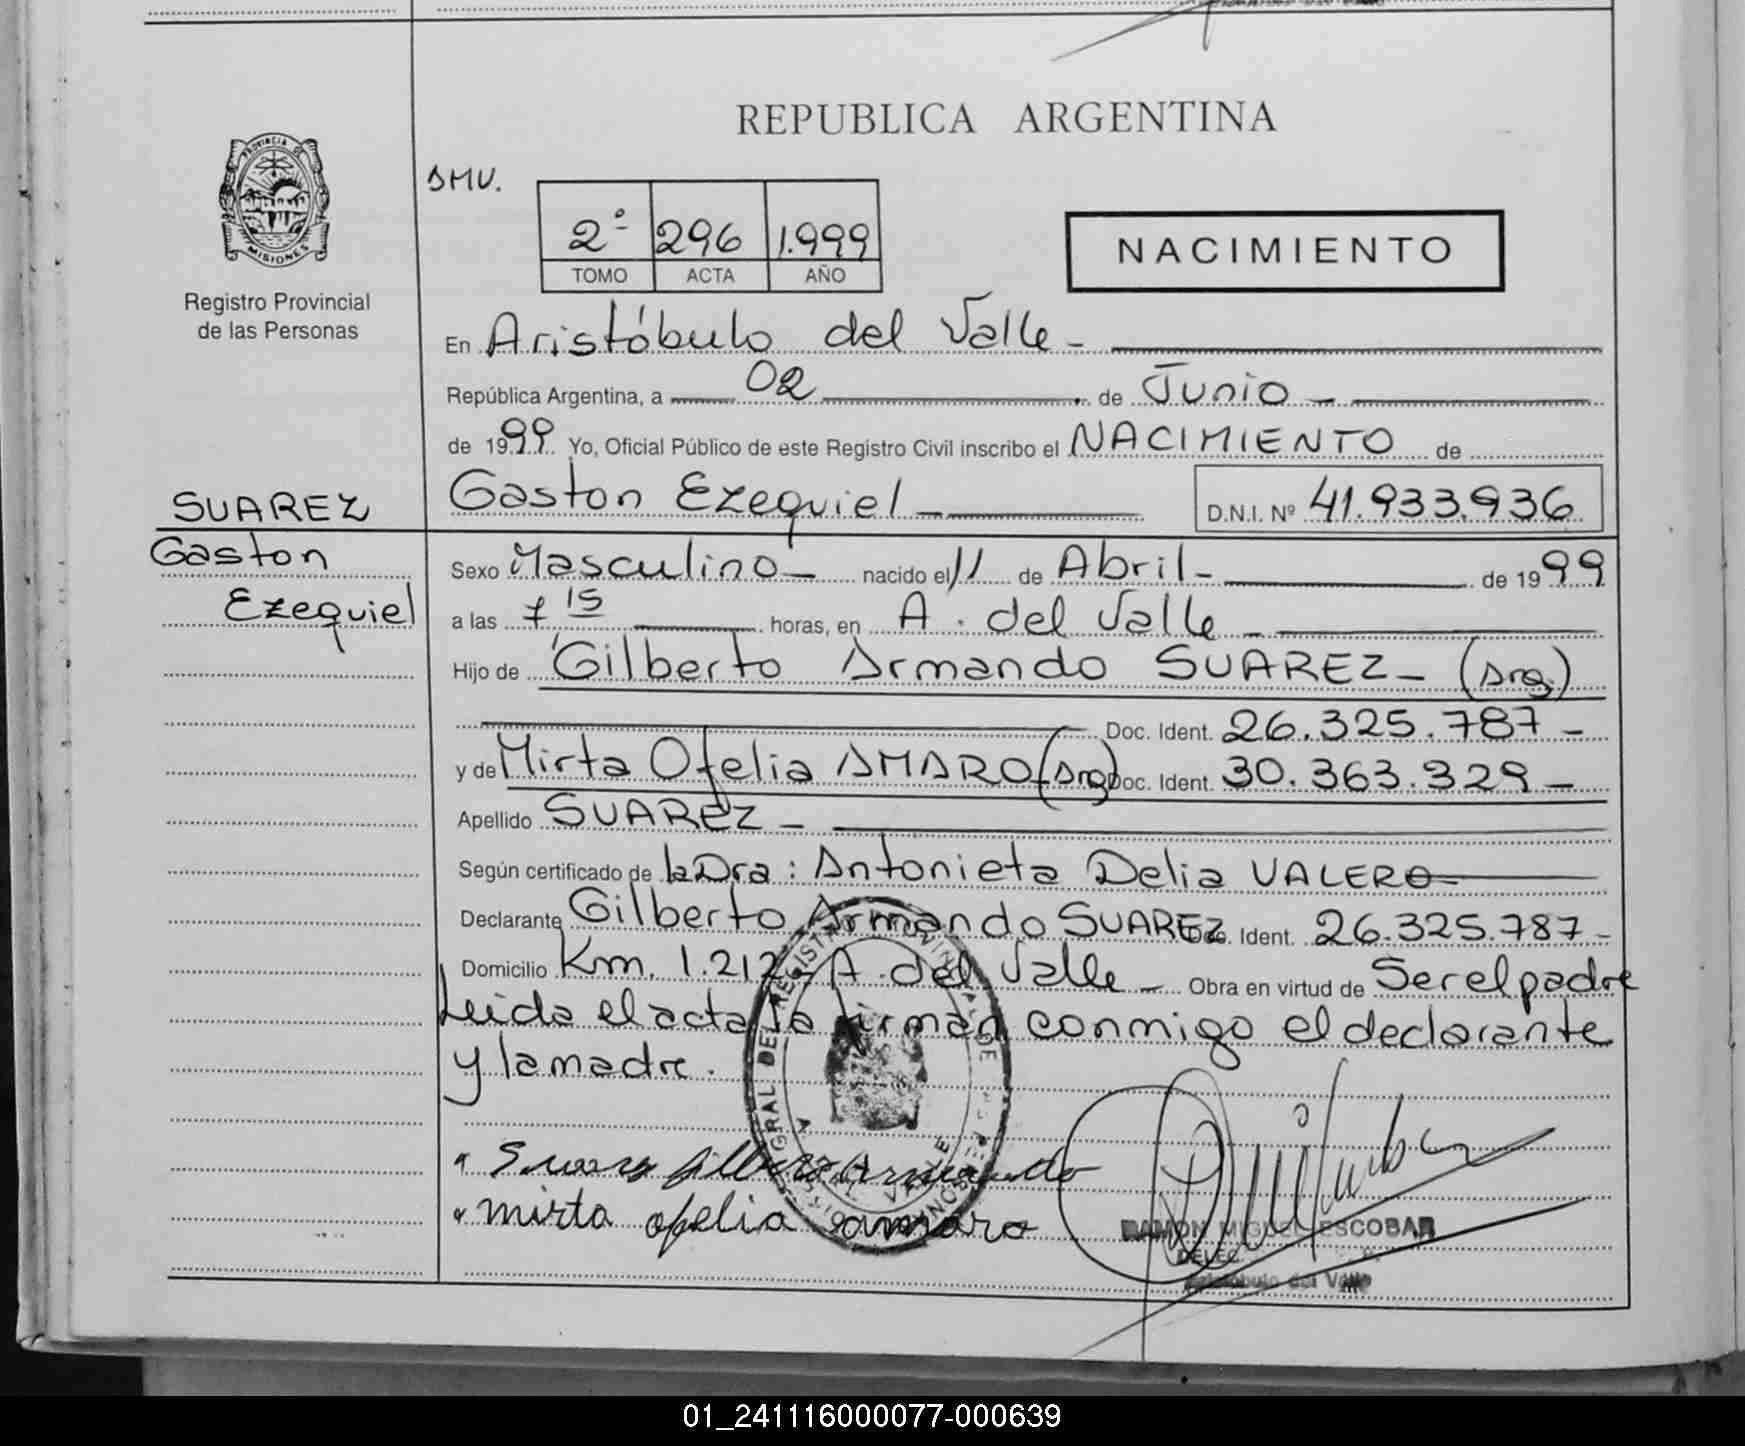 REPUBLICA ARGENTINA
PROVINCIA DE
MISIONES
Registro Provincial
de las Personas
SMV.
2º 296 1.999
TOMO ACTA AÑO
NACIMIENTO
En Aristóbulo del Valle -
República Argentina, a 02 de Junio -
de 1999 Yo, Oficial Público de este Registro Civil inscribo el NACIMIENTO de
SUAREZ
Gaston Ezequiel
Gaston Ezequiel - D.N.I. Nº 41.933.936
Sexo Masculino - nacido el 11 de Abril - de 1999
a las 7 15 horas, en A. del Valle -
Hijo de Gilberto Armando SUAREZ - (Arg)
Doc. Ident. 26.325.787 -
y de Mirta Ofelia AMARO (Arg) Doc. Ident. 30.363.329 -
Apellido SUAREZ -
Según certificado de la Dra: Antonieta Delia VALERO
Declarante Gilberto Armando SUAREZ Doc. Ident. 26.325.787 -
Domicilio Km. 1.212 - A. del Valle - Obra en virtud de Ser el padre
Leida el acta la firman conmigo el declarante
y la madre.
Suarez Gilberto Armando
mirta ofelia amaro
RAMON MIGUEL ESCOBAR
Aristobulo del Valle
01_241116000077-000639